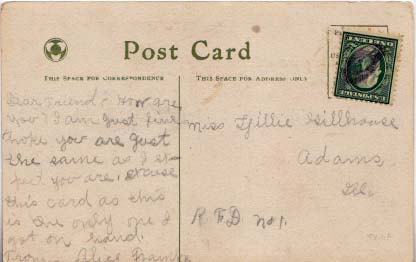 Post Card
THIS SPACE FOR CORRESPONDENCE
THIS SPACE FOR ADDRESS ONLY
Dear Friend: How are
you? I am just fine
hope you are just
the same as I ex-
pect you are. excuse
this card as this
is the only one I
got on hand.
From Alice
Miss Tillie Gillhouse
Adams
Ills.
R F D No 1.
ONE CENT
U.S. POSTAGE